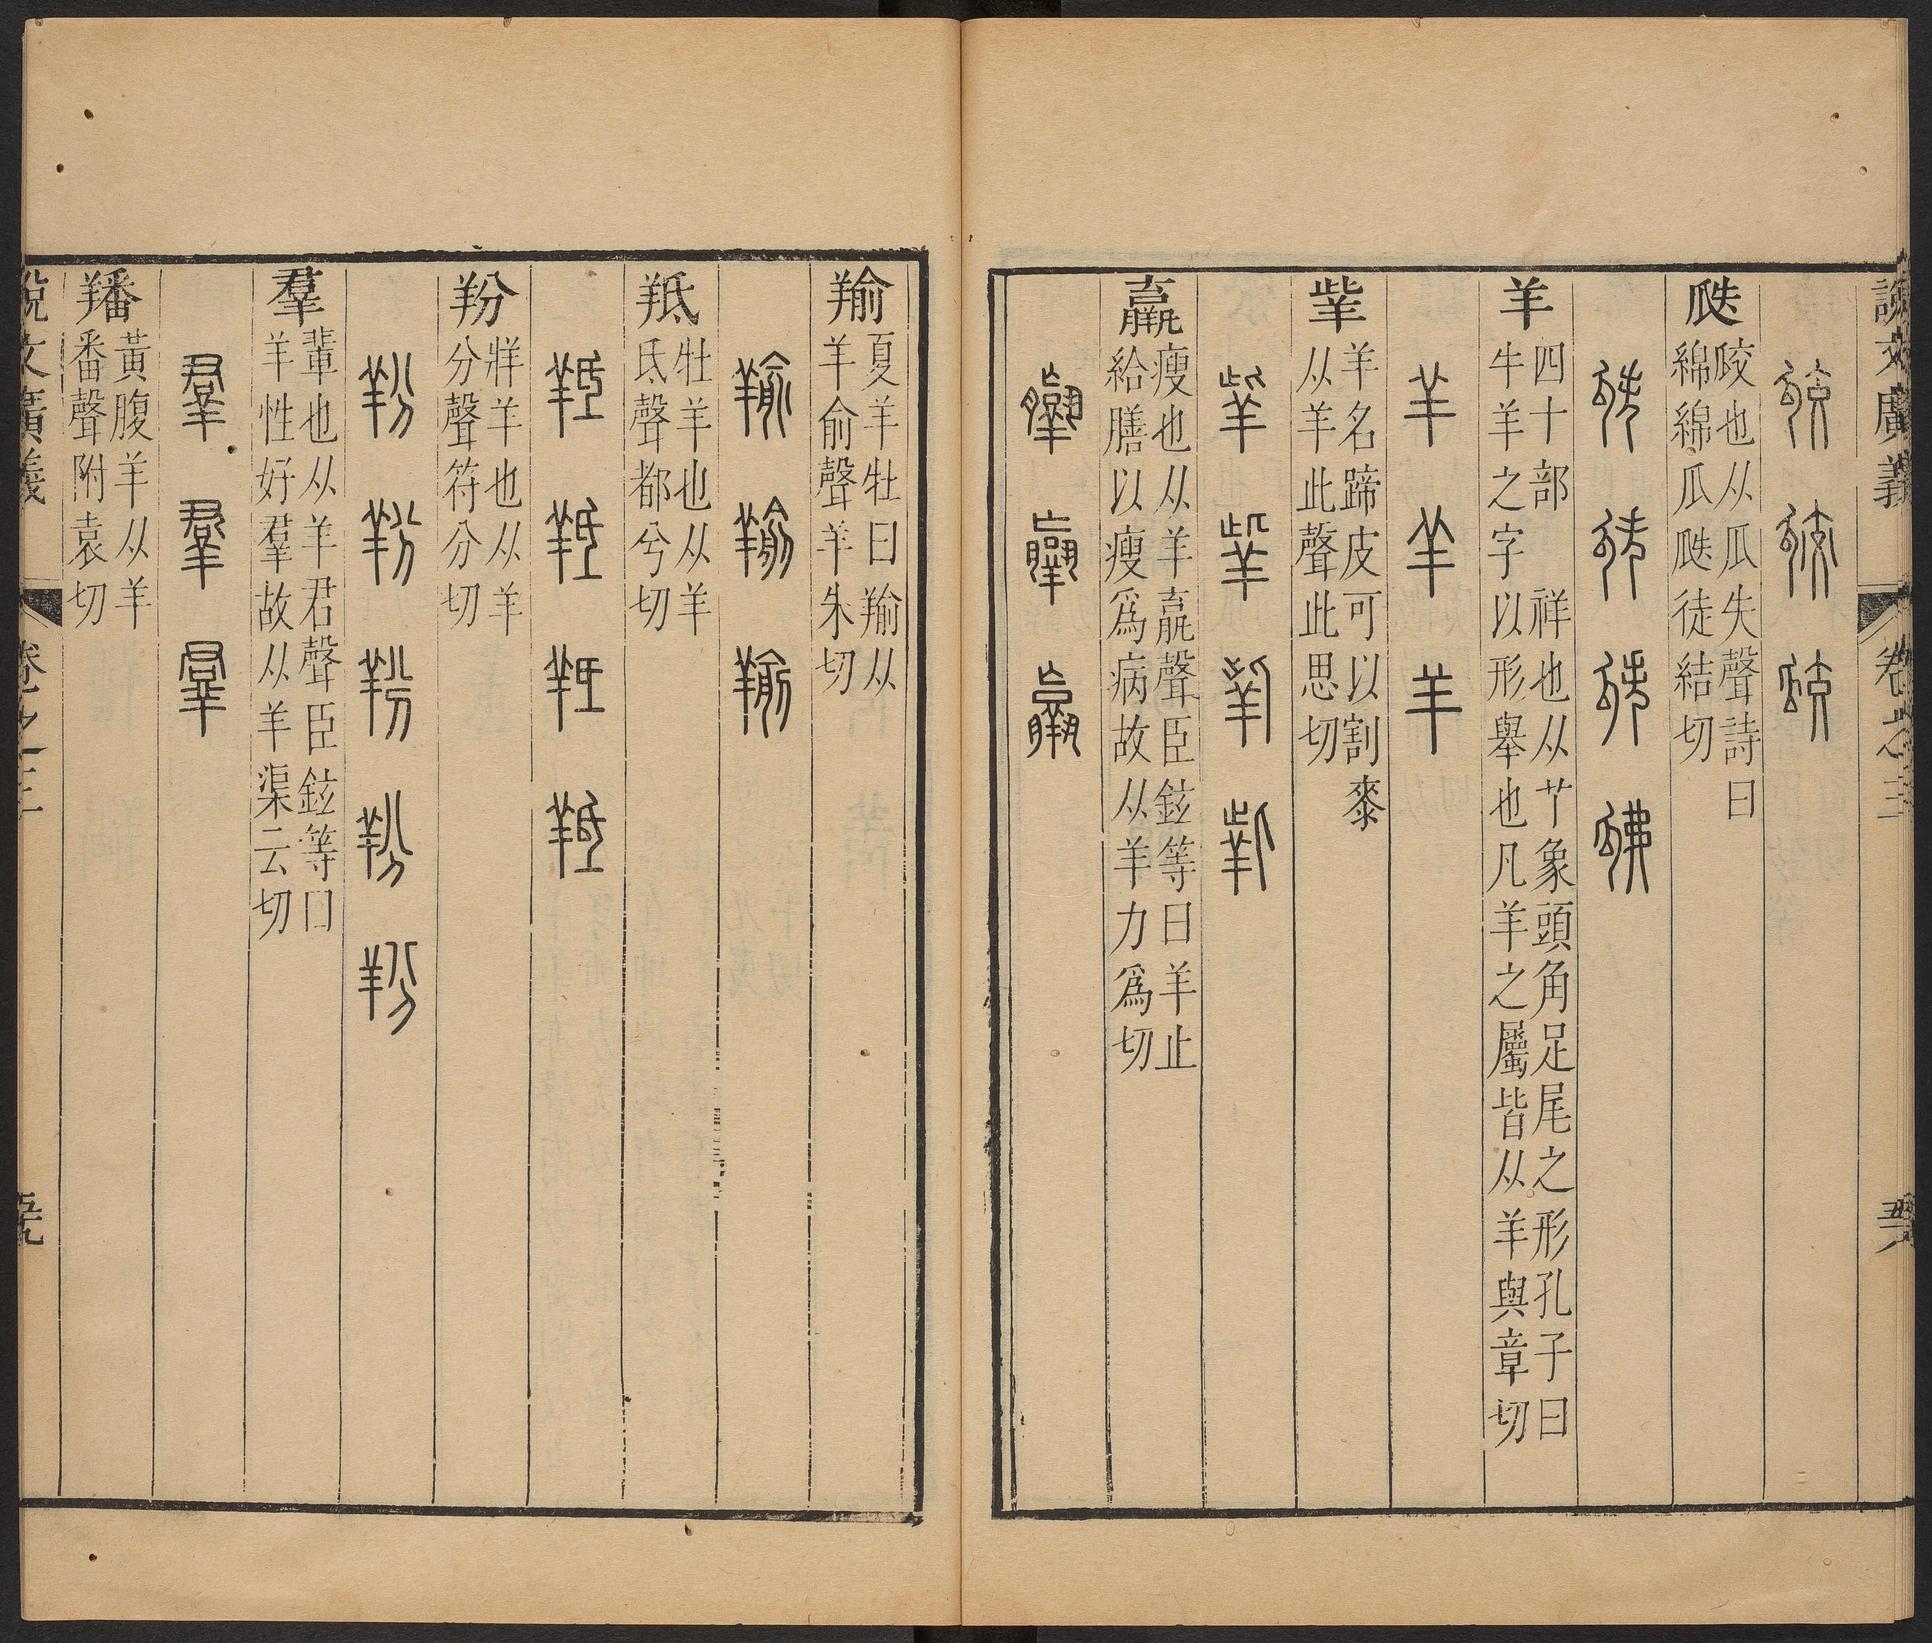 說文廣義
卷之三
瓞
㼎也从瓜失聲詩曰
綿綿瓜瓞徒結切
羊
四十部 祥也从𦫳象頭角足尾之形孔子曰
牛羊之字以形舉也凡羊之屬皆从羊與章切
羊 羊 羊
羊名蹄皮可以割桼
从羊此聲此思切
羸
瘦也从羊𣎆聲臣鉉等曰羊止
給膳以瘦爲病故从羊力爲切
羭
夏羊牡曰羭从
羊俞聲羊朱切
羭 羭 羭
羝
牡羊也从羊
氐聲都兮切
羝 羝 羝 羝
羒
牂羊也从羊
分聲符分切
羒 羒 羒 羒 羒
羣
輩也从羊君聲臣鉉等曰
羊性好羣故从羊渠云切
羣 羣 羣
羳
黃腹羊从羊
番聲附袁切
說文廣義
卷之三